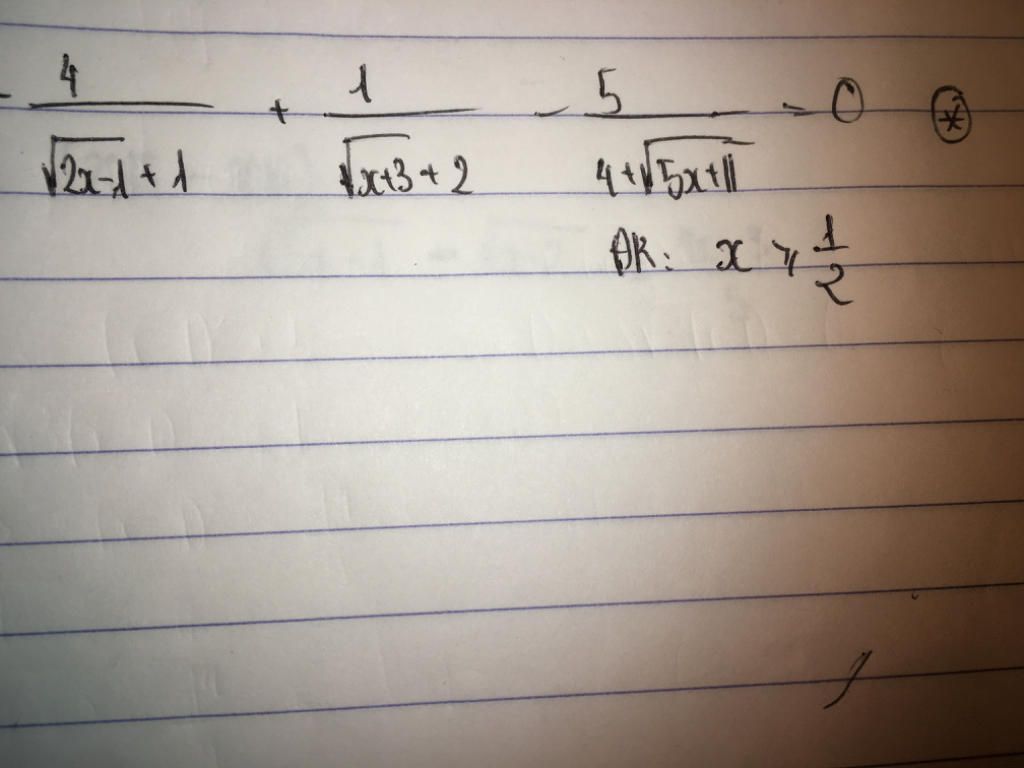 - 4/(√(2x-1) + 1) + 1/(√(x+3) + 2) - 5/(4+√(5x+11)) = 0 (*)
ĐK: x ≥ 1/2